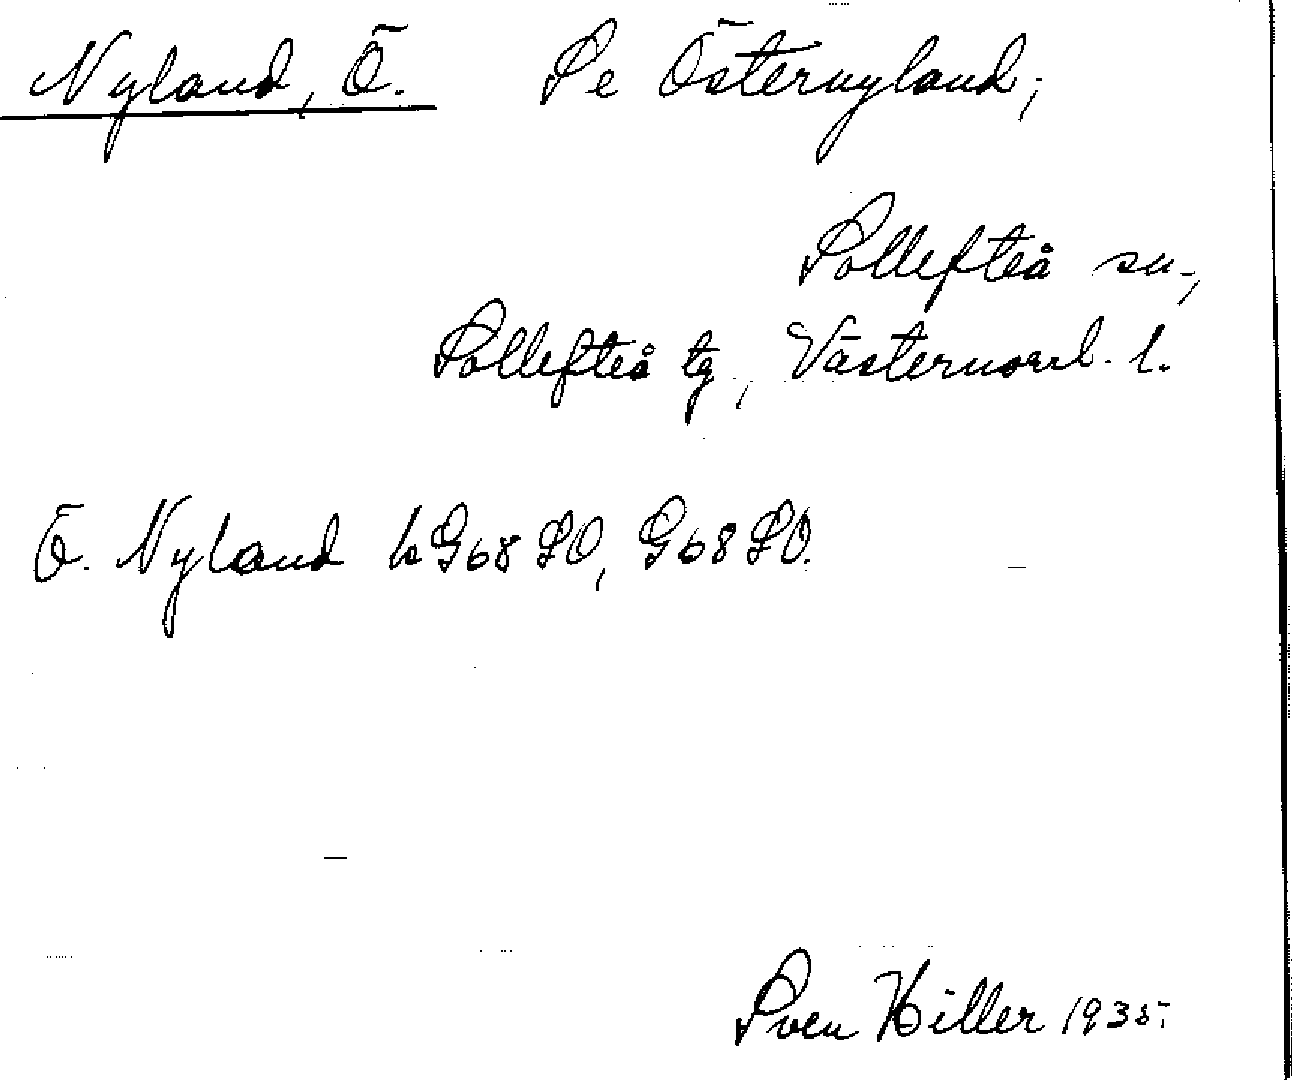 Nyland, Ö. Se Östernyland;
Sollefteå sn.,
Sollefteå tg, Västernorrl. l.
Ö. Nyland k G68 SO, G68 SO.
Sven Hiller 1935.